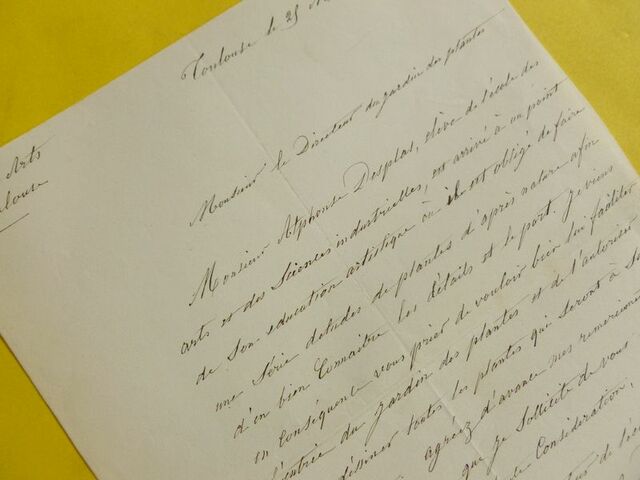 Toulouse le 25
Arts
Toulouse
Monsieur le Directeur du jardin des plantes
Monsieur Alphonse Desplas, élève de l'école des
arts et des Sciences industrielles, est arrivé à un point
de Son education artistique où il est obligé de faire
une Série détudes de plantes d'après nature afin
d'en bien Connaître les détails et le port. Je viens
en conséquence vous prier de vouloir bien lui faciliter
l'entrée du jardin des plantes et de l'autoriser
dessiner toutes les plantes qui Seront à Sa
agréez d'avance mes remerciments
que je Sollicite de vous
Consideration.